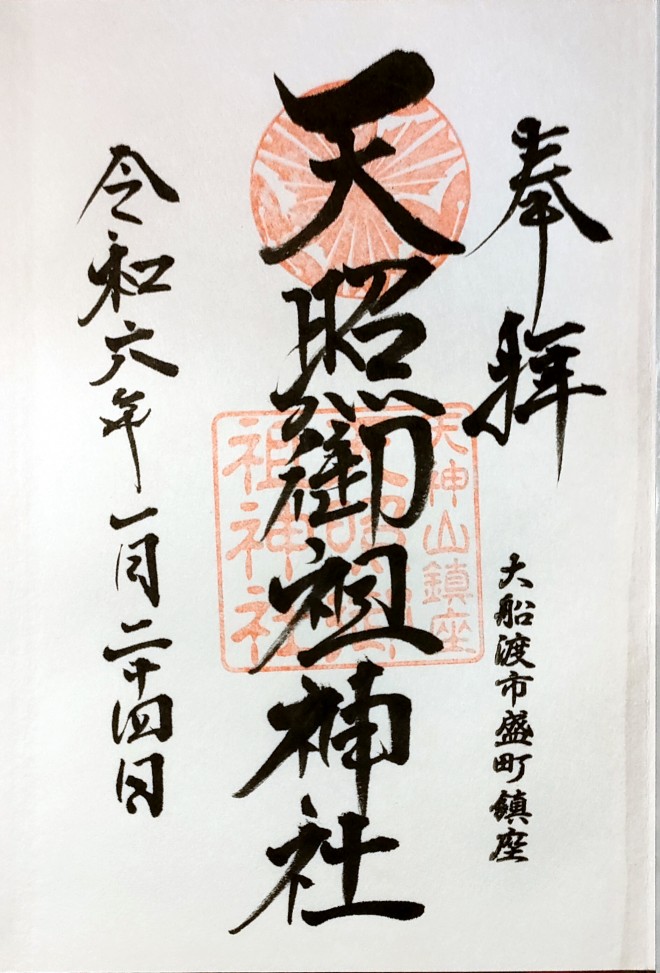 奉拝
大船渡市盛町鎮座
天照御祖神社
天神山鎮座
天照御
祖神社
令和六年一月二十四日